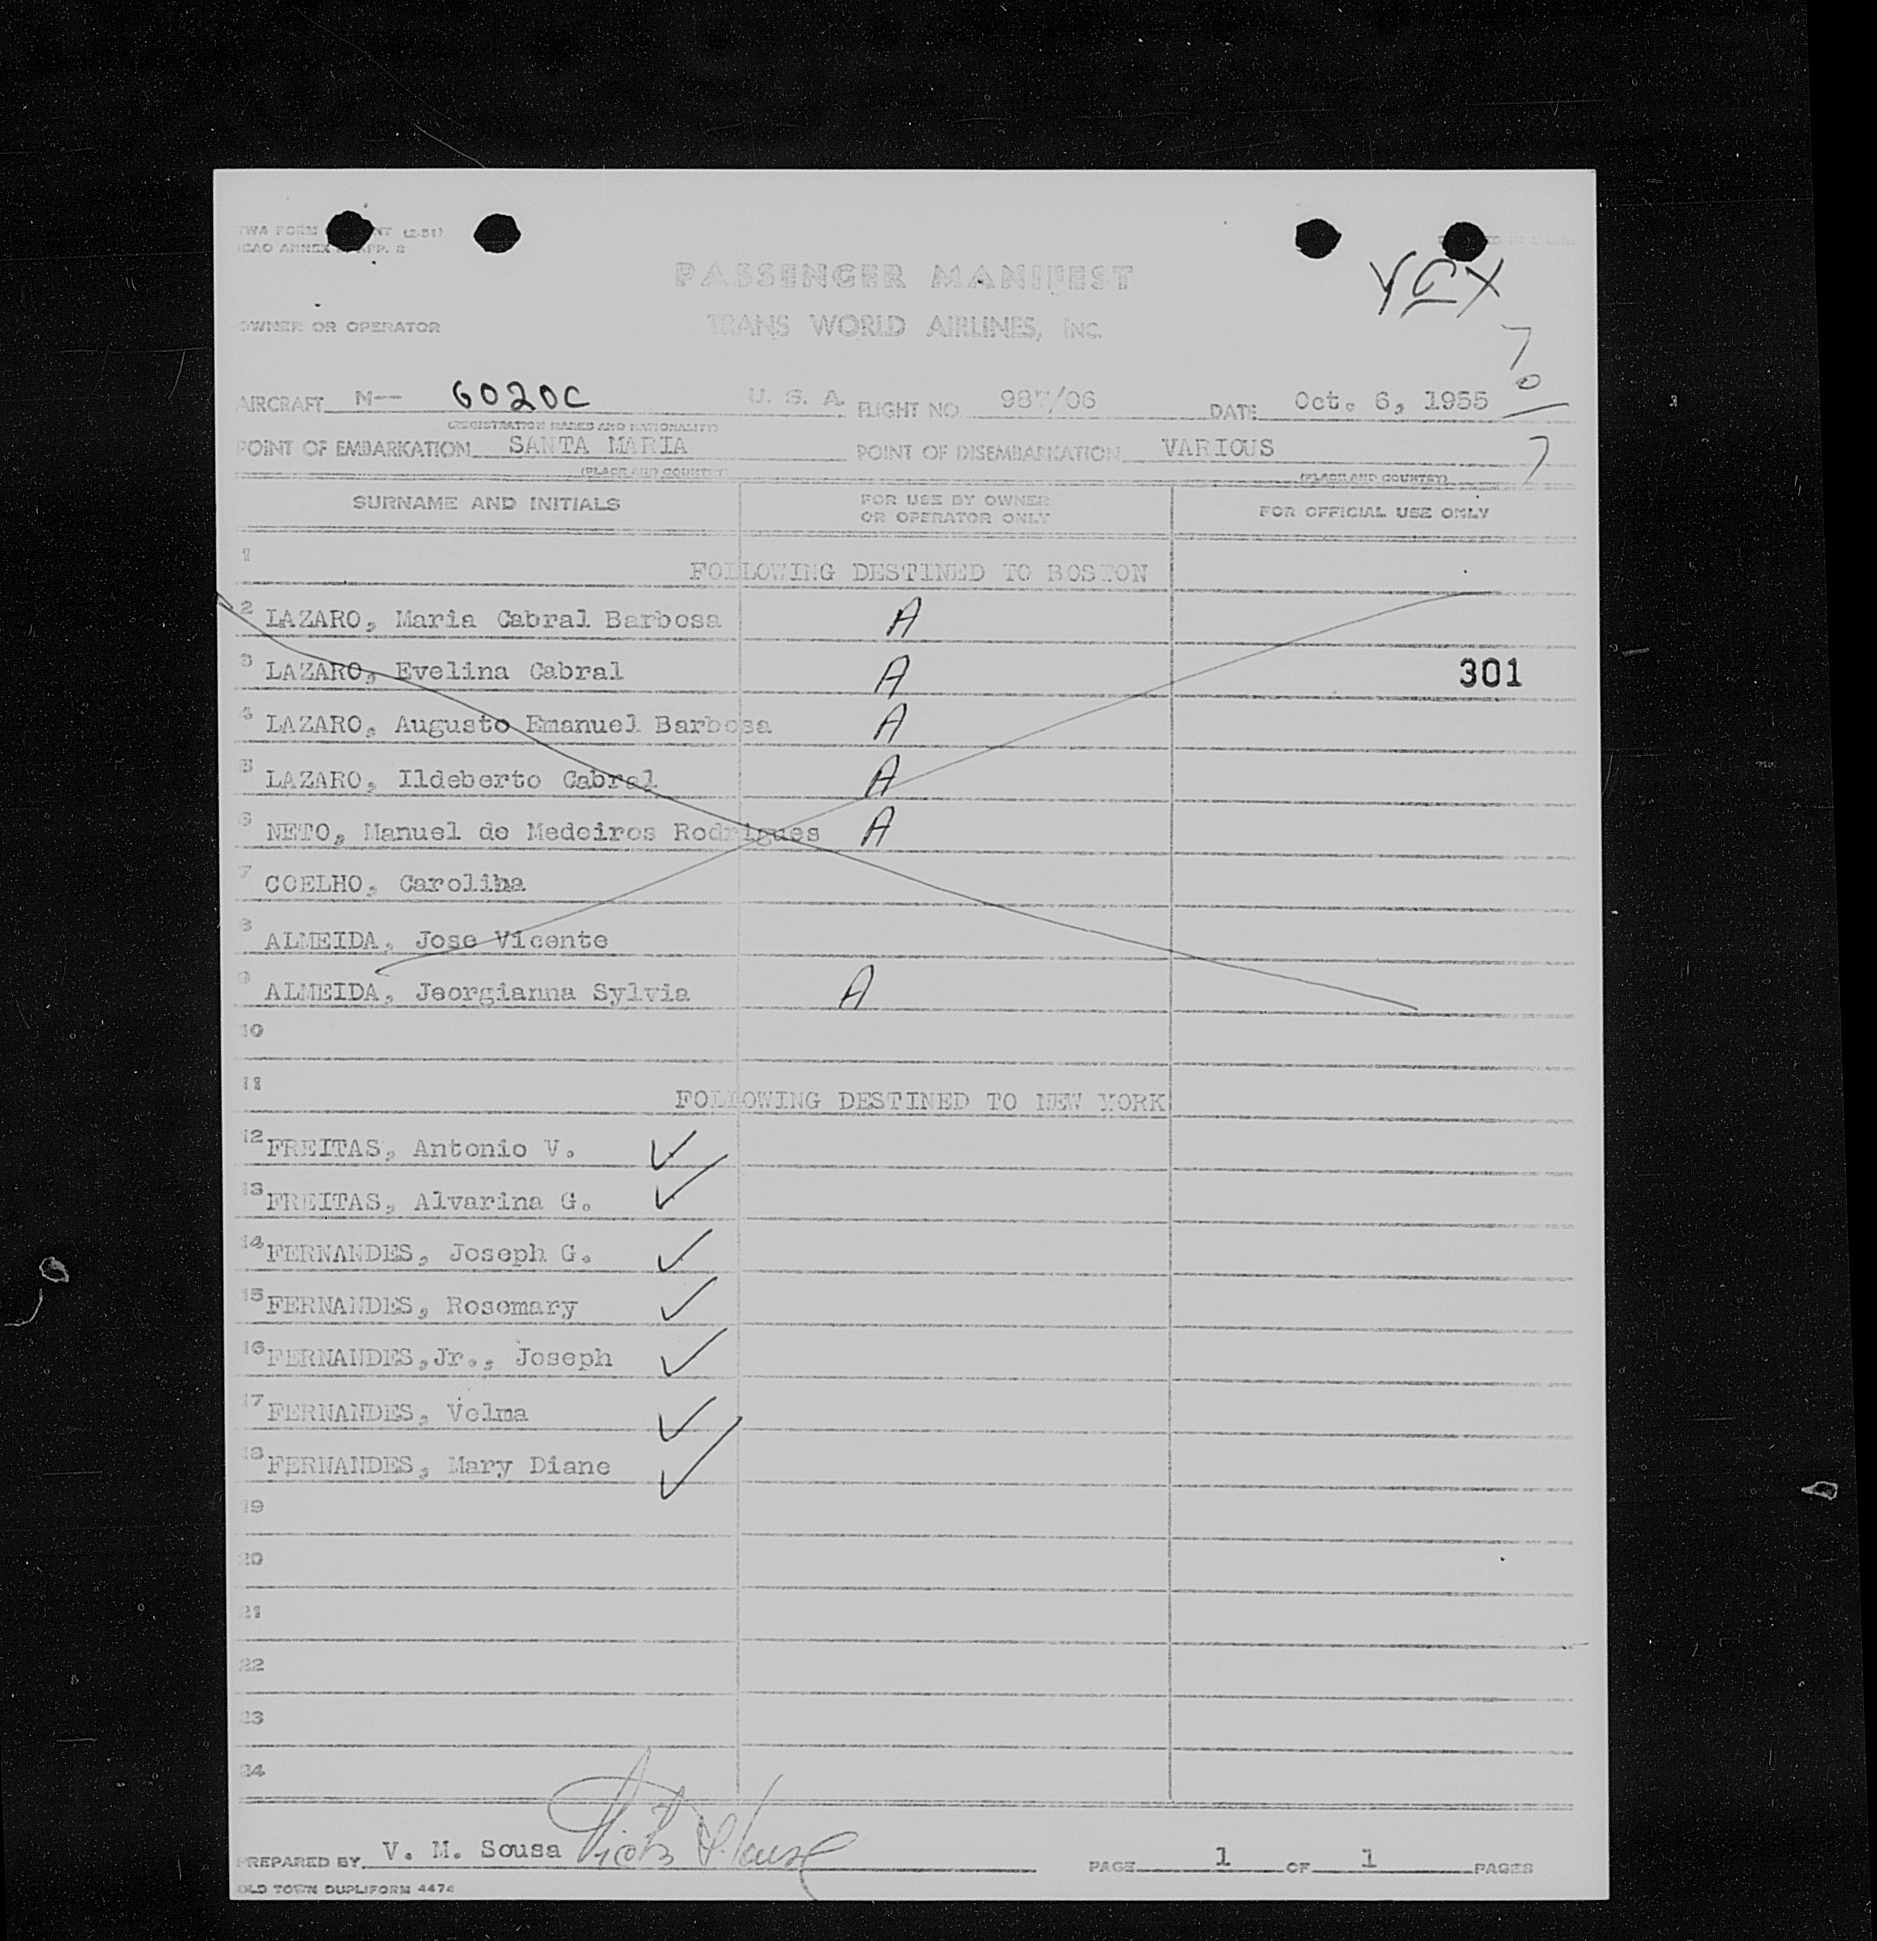 TWA FORM NT (2-51)
ICAO ANNEX APP. 2
PASSENGER MANIFEST
YCX
OWNER OR OPERATOR TRANS WORLD AIRLINES, INC.
AIRCRAFT N-- 6020C U. S. A. FLIGHT NO. /06 DATE Oct. 6, 1955
(REGISTRATION MARKS AND NATIONALITY)
POINT OF EMBARKATION SANTA MARIA POINT OF DISEMBARKATION VARIOUS
(PLACE AND COUNTRY) (PLACE AND COUNTRY)
SURNAME AND INITIALS FOR USE BY OWNER OR OPERATOR ONLY FOR OFFICIAL USE ONLY
1 FOLLOWING DESTINED TO BOSTON
2 LAZARO, Maria Cabral Barbosa A
3 LAZARO, Evelina Cabral A 301
4 LAZARO, Augusto Emanuel Barbosa A
5 LAZARO, Ildeberto Cabral A
6 NETO, Manuel de Medeiros Rodrigues A
7 COELHO, Carolina
8 ALMEIDA, Jose Vicente
9 ALMEIDA, Jeorgianna Sylvia A
10
11 FOLLOWING DESTINED TO NEW YORK
12 FREITAS, Antonio V. ✓
13 FREITAS, Alvarina G. ✓
14 FERNANDES, Joseph G. ✓
15 FERNANDES, Rosemary ✓
16 FERNANDES,Jr., Joseph ✓
17 FERNANDES, Velma ✓
18 FERNANDES, Mary Diane ✓
19
20
21
22
23
24
PREPARED BY V. M. Sousa PAGE 1 OF 1 PAGES
OLD TOWN DUPLIFORM 4474